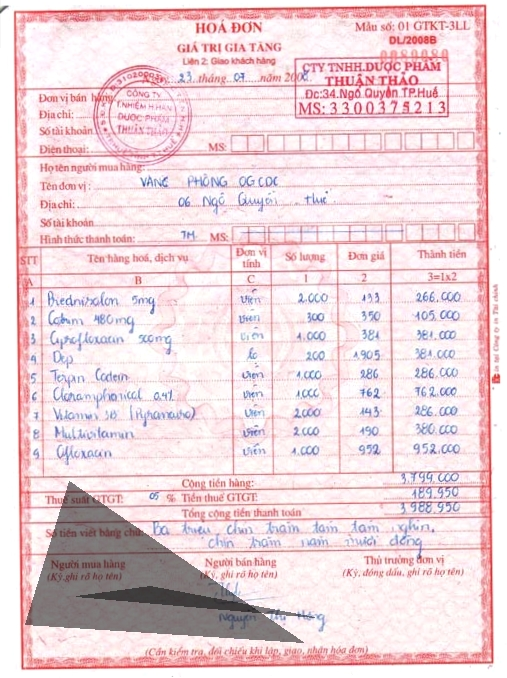 HOÁ ĐƠN
GIÁ TRỊ GIA TĂNG
Liên 2: Giao khách hàng
Mẫu số: 01 GTKT-3LL
DL/2008B
23 tháng 07 năm 2008
CTY TNHH.DƯỢC PHẨM
THUẬN THẢO
Đc:34.Ngô Quyền TP.Huế
MS: 3300375213
CÔNG TY
DƯỢC PHẨM
THUẬN THẢO
Đơn vị bán hàng
Địa chỉ:
Số tài khoản
Điện thoại: MS:
Họ tên người mua hàng:
Tên đơn vị: VĂNG PHÒNG OGCDC
Địa chỉ: 06 Ngô Quyền. Huế
Số tài khoản
Hình thức thanh toán: TM MS:
STT Tên hàng hoá, dịch vụ Đơn vị tính Số lượng Đơn giá Thành tiền
A B C 1 2 3=1x2
1 Prednisolon 5mg Viên 2.000 133 266.000
2 480mg Viên 300 350 105.000
3 Ciprofloxacin 500mg Viên 1.000 381 381.000
4 Dep lọ 200 1.905 381.000
5 Terpin Codein Viên 1.000 286 286.000
6 Cloramphenical 0.4% Viên 1.000 762 762.000
7 Vitamin 3B Viên 2000 143 286.000
8 Multivitamin Viên 2.000 190 380.000
9 Ofloxacin Viên 1.000 952 952.000
Cộng tiền hàng: 3.799.000
Thuế suất GTGT: 05 % Tiền thuế GTGT: 189.950
Tổng cộng tiền thanh toán 3988.950
Số tiền viết bằng chữ: Ba triệu chín trăm tám tám nghìn,
chín trăm năm mươi đồng
Người mua hàng Người bán hàng Thủ trưởng đơn vị
(Ký, ghi rõ họ tên) (Ký, ghi rõ họ tên) (Ký, đóng dấu, ghi rõ họ tên)
Nguyễn Thị Hồng
(Cần kiểm tra, đối chiếu khi lập, giao, nhận hóa đơn)